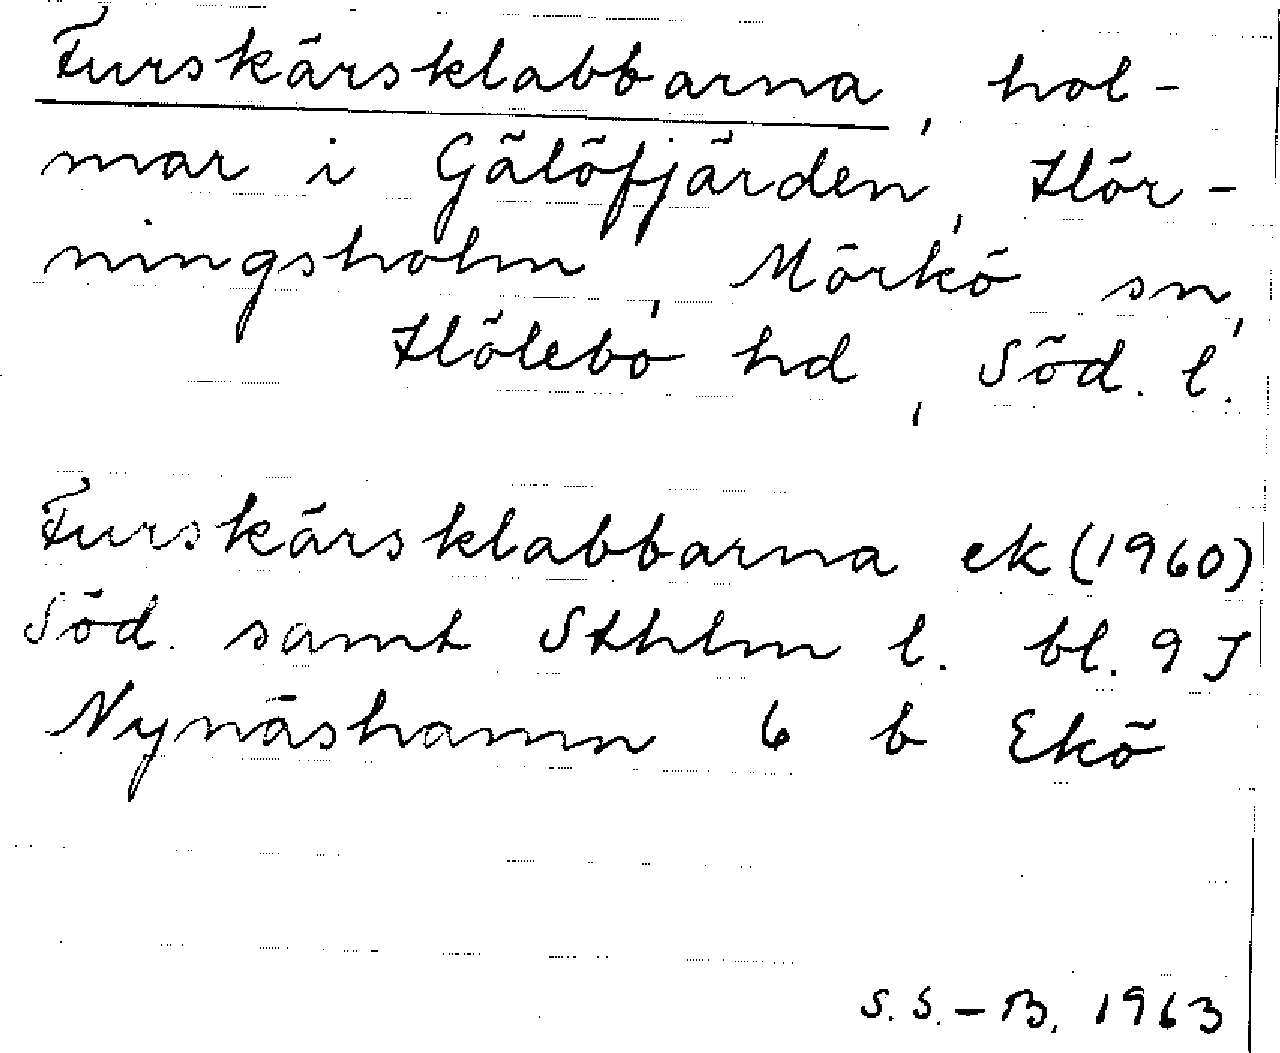 Furskärsklabbarna, hol-
mar i Gälöfjärden, Hör-
ningsholm, Mörkö sn,
Hölebo hd, Söd. l.
Furskärsklabbarna ek (1960)
Söd. samt Sthlm l. bl. 9 I
Nynäshamn 6 b Ekö
S. S.-B. 1963